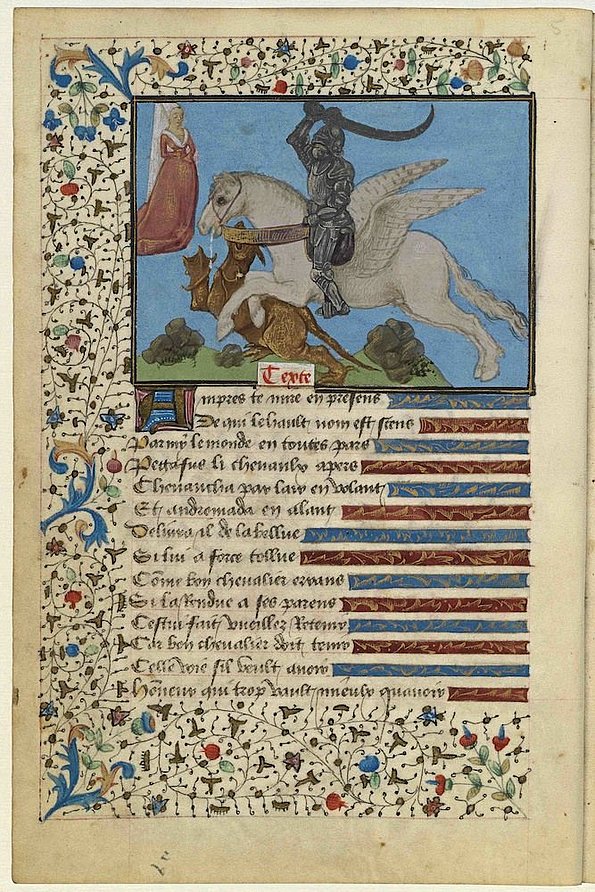 Texte
Aupres te mire en persens
De qui le hault nom est scens
Par my le monde en toutes pars
Pegasus li chevaulx apers
Chevaucha par lair en volant
Et andromada en alant
Delivra il de la bellue
Si lui a force tollue
Com̄e bon chevalier errans
Si la rendue a ses parens
Cestui fait vueillez retenir
Car bon chevalier doit tenir
Celle voye sil veult avoir
Honneur qui trop vault mieulx quavoir